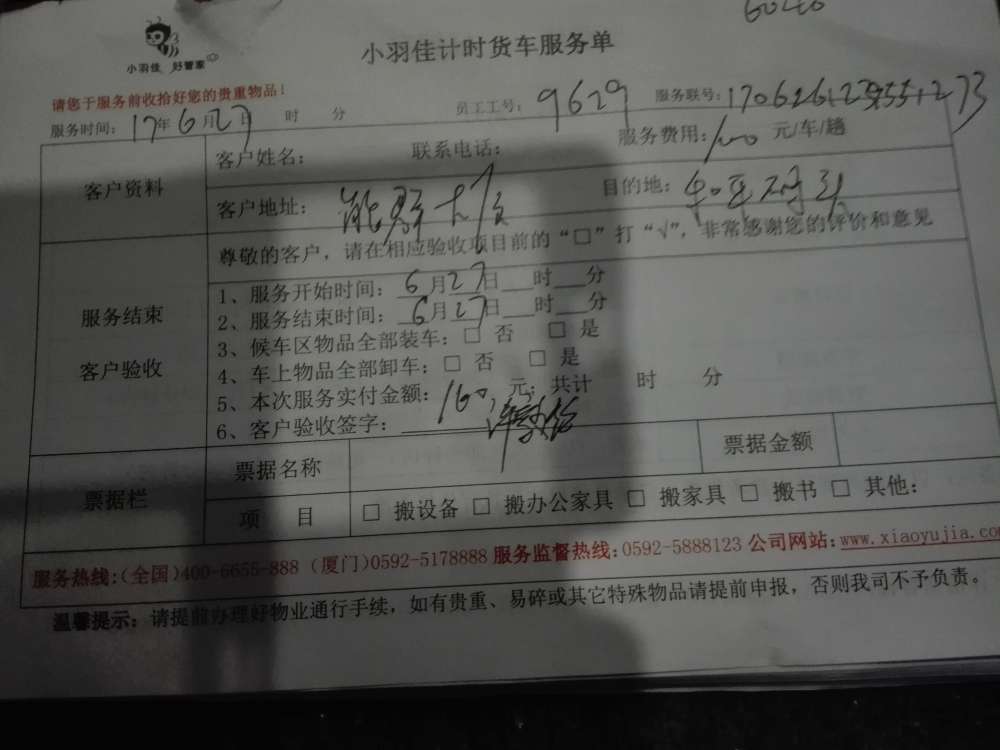 6040
小羽佳 好管家
小羽佳计时货车服务单
请您于服务前收拾好您的贵重物品！
服务时间：17年6月27日 时 分 员工工号：9629 服务联号：
客户资料
客户姓名： 联系电话： 服务费用：100 元/车/趟
客户地址： 目的地：
服务结束
客户验收
尊敬的客户，请在相应验收项目前的“□”打“√”，非常感谢您的评价和意见
1、服务开始时间：6月27日___时___分
2、服务结束时间：6月27日___时___分
3、候车区物品全部装车：□ 否 □ 是
4、车上物品全部卸车：□ 否 □ 是
5、本次服务实付金额：160 元；共计 时 分
6、客户验收签字：
票据栏
票据名称 票据金额
项 目 □ 搬设备 □ 搬办公家具 □ 搬家具 □ 搬书 □ 其他：
服务热线:(全国)400-6655-888 (厦门)0592-5178888 服务监督热线:0592-5888123 公司网站:www.xiaoyujia.co
温馨提示：请提前办理好物业通行手续，如有贵重、易碎或其它特殊物品请提前申报，否则我司不予负责。